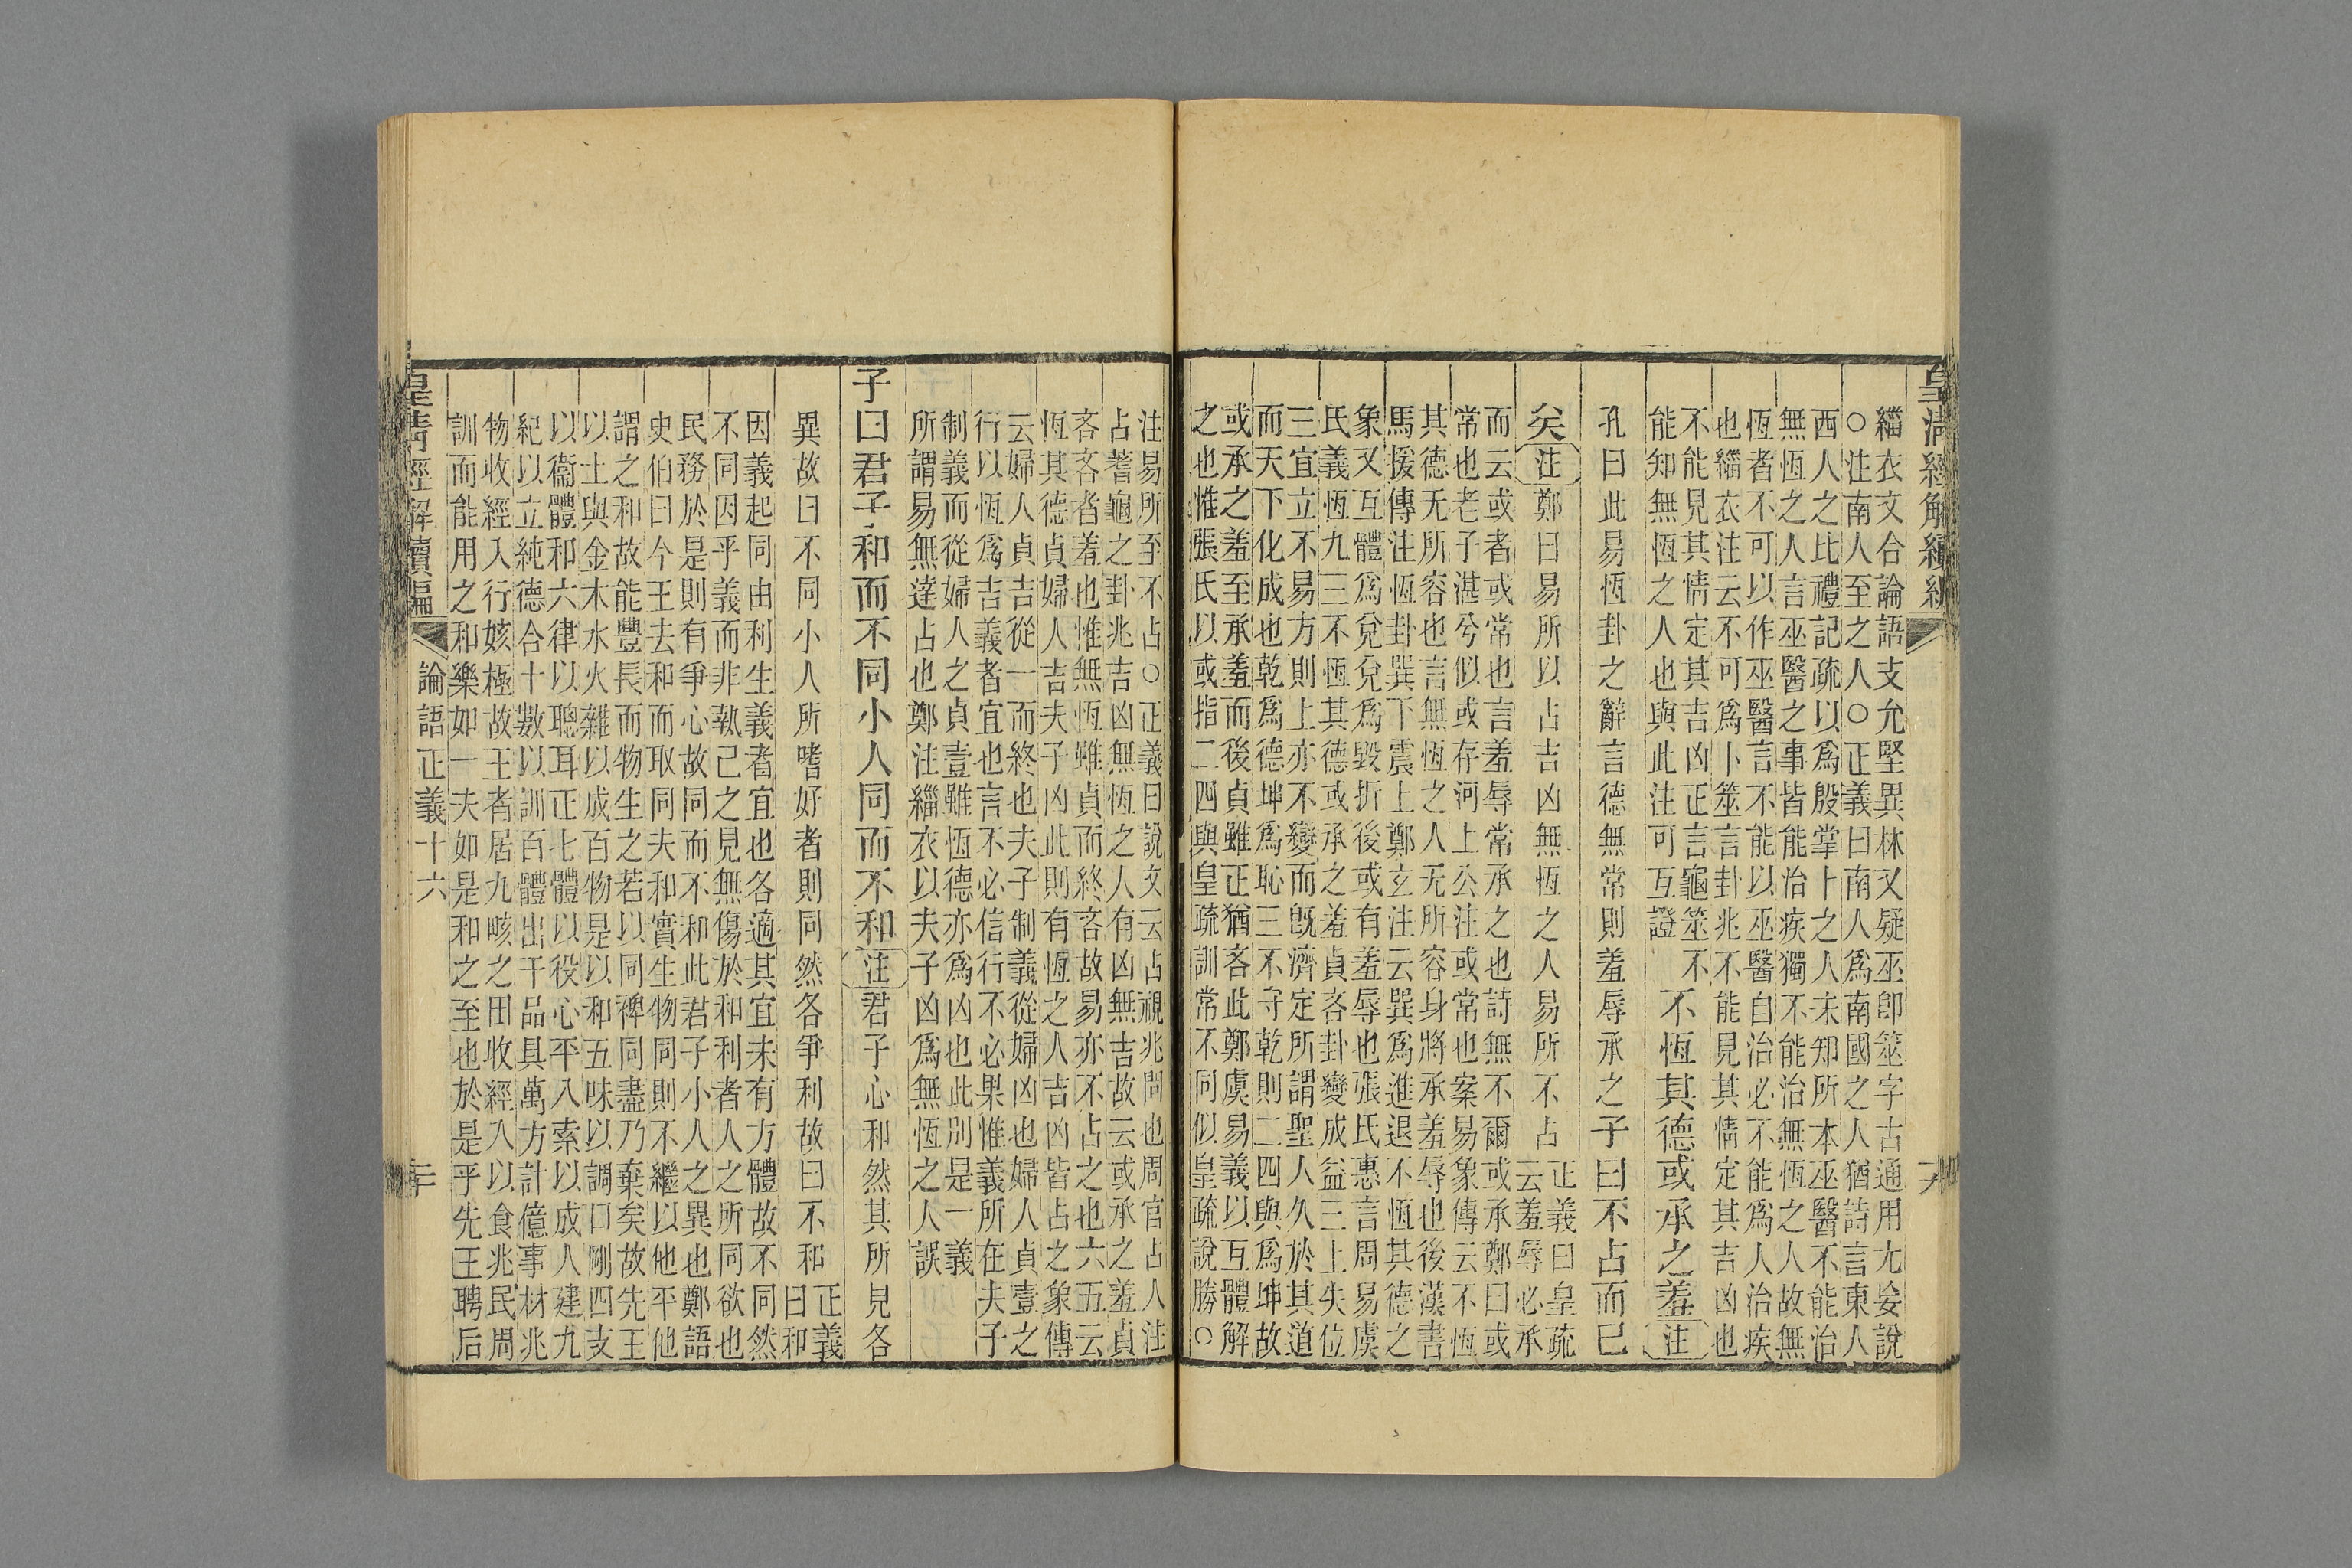 皇清經解續編
緇衣文合論語支允堅異林又疑巫卽筮字古通用尤妄說
○注南人至之人○正義曰南人爲南國之人猶詩言東人
西人之比禮記疏以爲殷掌卜之人未知所本巫醫不能治
無恆之人言巫醫之事皆能治疾獨不能治無恆之人故無
恆者不可以作巫醫言不能以巫醫自治必不能爲人治疾
也緇衣注云不可爲卜筮言卦兆不能見其情定其吉凶也
不能見其情定其吉凶正言龜筮不
能知無恆之人也與此注可互證
不恆其德或承之羞注
孔曰此易恆卦之辭言德無常則羞辱承之子曰不占而已
矣注鄭曰易所以占吉凶無恆之人易所不占
正義曰皇疏
云羞辱必承
而云或者或常也言羞辱常承之也詩無不爾或承鄭曰或
常也老子湛兮似或存河上公注或常也案易象傳云不恆
其德无所容也言無恆之人无所容身將承羞辱也後漢書
馬援傳注恆卦巽下震上鄭玄注云巽爲進退不恆其德之
象又互體爲兌兌爲毀折後或有羞辱也張氏惠言周易虞
氏義恆九三不恆其德或承之羞貞吝卦變成益三上失位
三宜立不易方則上亦不變而旣濟定所謂聖人久於其道
而天下化成也乾爲德坤爲恥三不守乾則二四與爲坤故
或承之羞至承羞而後貞雖正猶吝此鄭虞易義以互體解
之也惟張氏以或指二四與皇疏訓常不同似皇疏說勝○
注易所至不占○正義曰說文云占視兆問也周官占人注
占蓍龜之卦兆吉凶無恆之人有凶無吉故云或承之羞貞
吝吝者羞也惟無恆雖貞而終吝故易亦不占之也六五云
恆其德貞婦人吉夫子凶此則有恆之人吉凶皆占之象傳
云婦人貞吉從一而終也夫子制義從婦凶也婦人貞壹之
行以恆爲吉義者宜也言不必信行不必果惟義所在夫子
制義而從婦人之貞壹雖恆德亦爲凶也此別是一義
所謂易無達占也鄭注緇衣以夫子凶爲無恆之人誤
子曰君子和而不同小人同而不和注君子心和然其所見各
異故曰不同小人所嗜好者則同然各爭利故曰不和
正義
曰和
因義起同由利生義者宜也各適其宜未有方體故不同然
不同因乎義而非執己之見無傷於和利者人之所同欲也
民務於是則有爭心故同而不和此君子小人之異也鄭語
史伯曰今王去和而取同夫和實生物同則不繼以他平他
謂之和故能豐長而物生之若以同裨同盡乃棄矣故先王
以土與金木水火雜以成百物是以和五味以調口剛四支
以衞體和六律以聰耳正七體以役心平八索以成人建九
紀以立純德合十數以訓百體出千品具萬方計億事材兆
物收經入行姟極故王者居九畡之田收經入以食兆民周
訓而能用之和樂如一夫如是和之至也於是乎先王聘后
皇清經解續編
論語正義十六